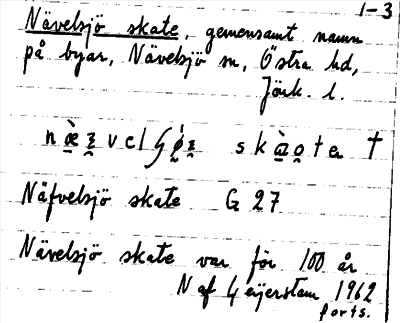 1-3
Nävelsjö skate, gemensamt namn
på byar, Nävelsjö sn, Östra hd,
Jönk. l.
skàota †
Näfvelsjö skate G 27
Nävelsjö skate var för 100 år
N af Geijerstam 1962
forts.